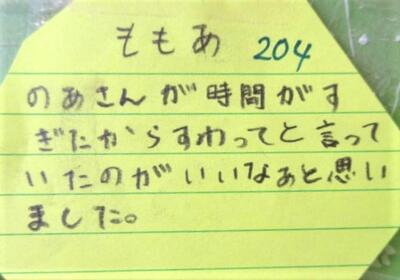 ももあ 204
のあさんが時間がす
ぎたからすわってと言って
いたのがいいなぁと思い
ました。